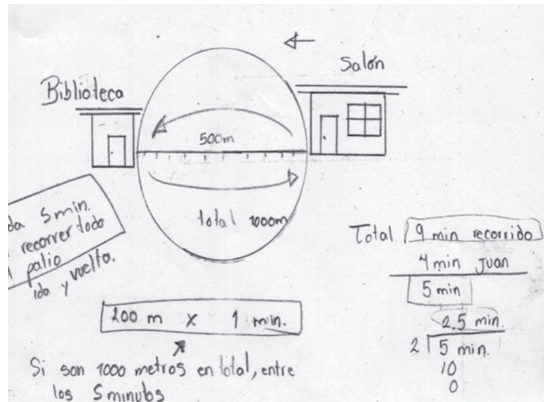 Salón
Biblioteca
500m
total 1000m
da 5 min.
recorrer todo
patio
ida y vuelta.
200 m x 1 min.
Si son 1000 metros en total, entre
los 5 minutos
Total 9 min recorrido
4 min Juan
5 min
2.5 min.
2 5 min.
10
0